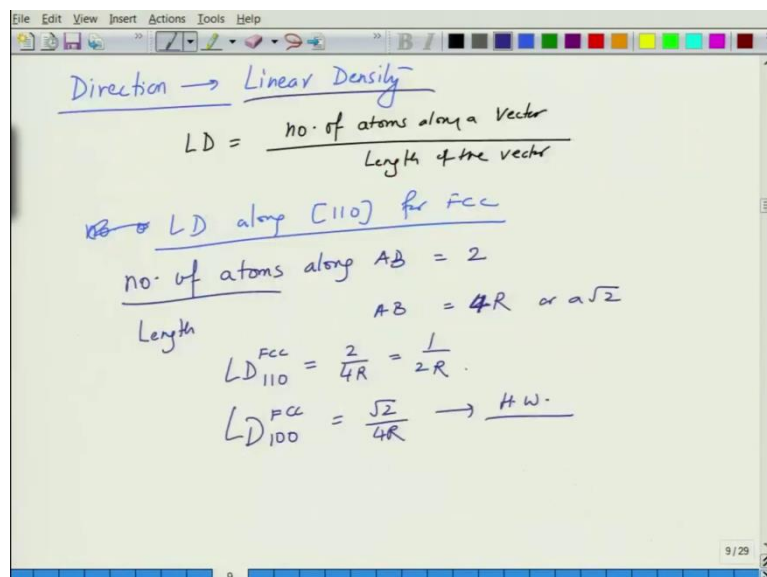 File Edit View Insert Actions Tools Help
Direction → Linear Density
LD = no. of atoms along a vector
Length of the vector
LD along [110] for FCC
no. of atoms along AB = 2
Length AB = 4R or a√2
LD FCC 110 = 2/4R = 1/2R.
LD FCC 100 = √2/4R → HW.
9/29
9